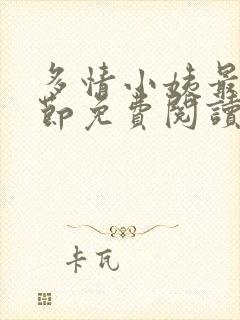 多情小姨最
節免費閱讀
卡瓦